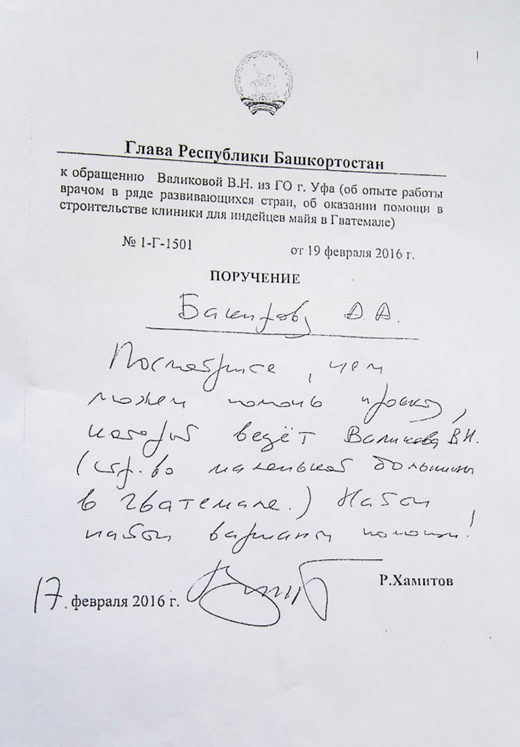 Глава Республики Башкортостан
к обращению Валиковой В.Н. из ГО г. Уфа (об опыте работы
врачом в ряде развивающихся стран, об оказании помощи в
строительстве клиники для индейцев майя в Гватемале)
№ 1-Г-1501 от 19 февраля 2016 г.
ПОРУЧЕНИЕ
Бакирову Д.А.
Посмотрите, чем
можем помочь проекту,
который ведёт Валикова В.Н.
(стр-во маленькой больницы
в Гватемале.)
варианты помощи!
Р.Хамитов
17. февраля 2016 г.